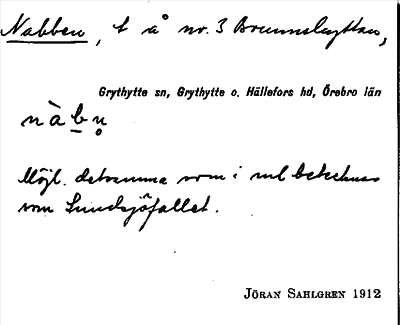 Nabben, t å nr. 3 Brunnshyttan,
Grythytte sn, Grythytte o. Hällefors hd, Örebro län
nàbn̥
Möjl. detsamma som i ml betecknas
som Sundsjöfallet.
JÖRAN SAHLGREN 1912